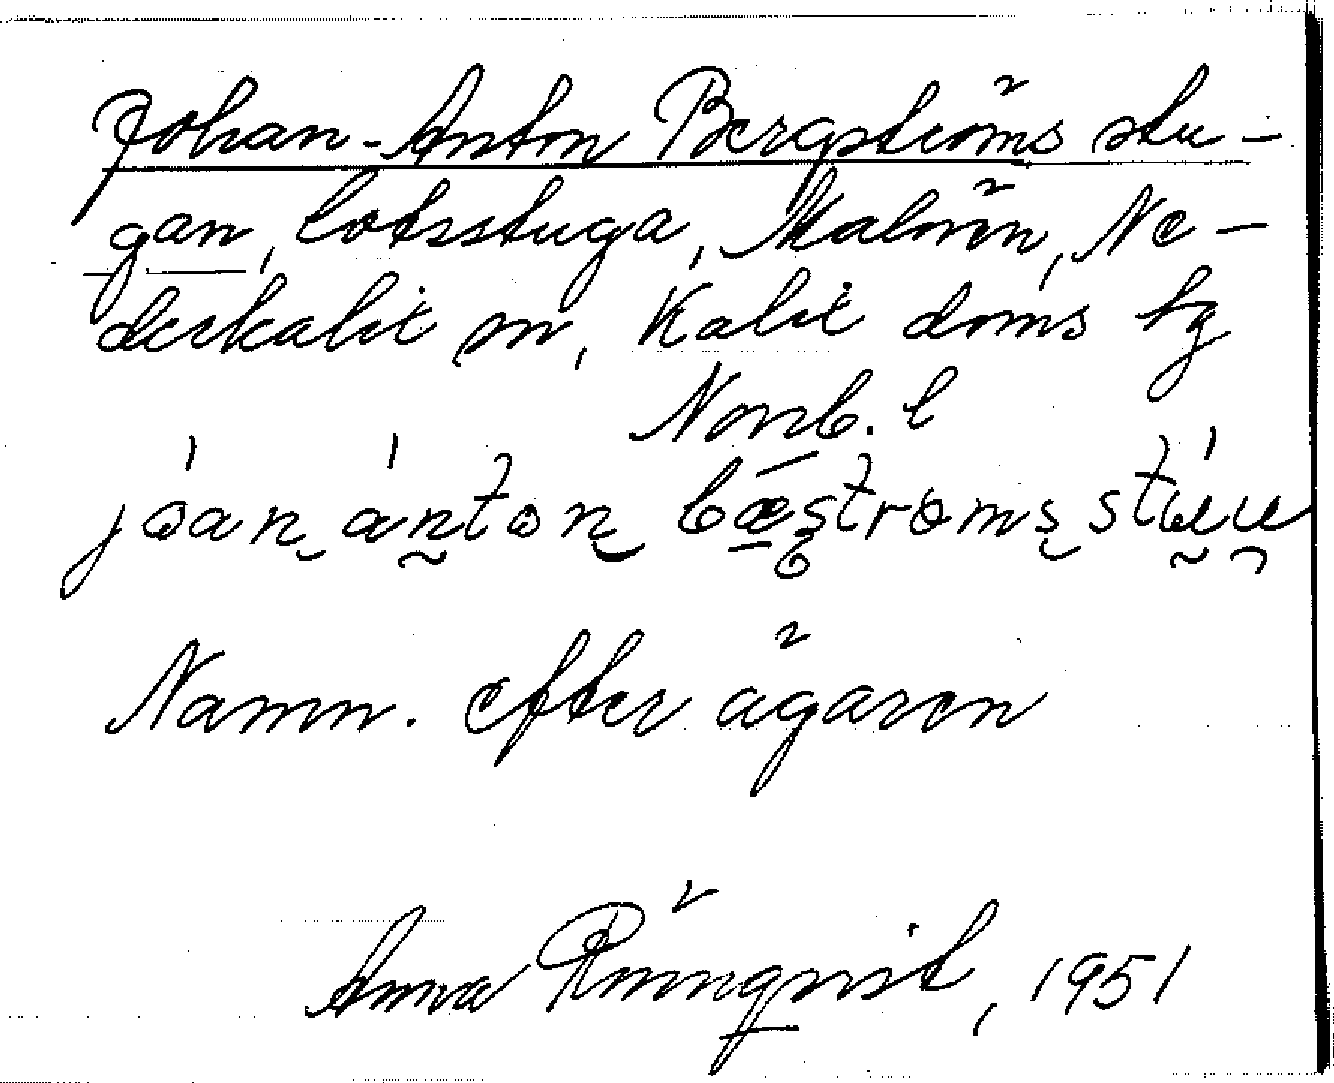 Johan-Anton Bergströms stu-
gan, lotsstuga, Malören, Ne-
derkalix sn, Kalix doms tg
Norrb. l
Namn. efter ägaren
Anna Rönnqvist, 1951